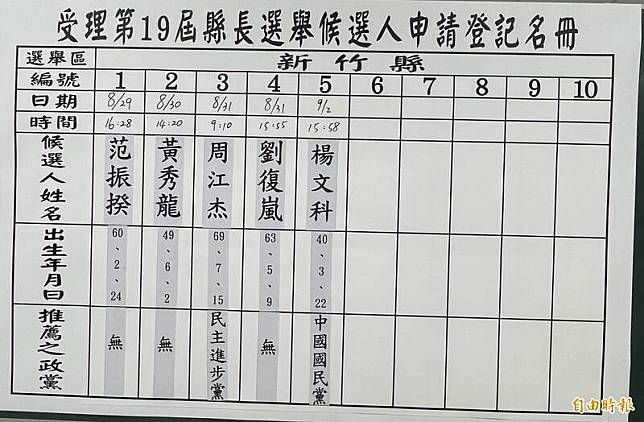 受理第19屆縣長選舉候選人申請登記名冊
選舉區 新竹縣
編號 1 2 3 4 5 6 7 8 9 10
日期 8/29 8/30 8/31 8/31 9/2
時間 16:28 14:20 9:10 15:55 15:58
候選人姓名 范振揆 黃秀龍 周江杰 劉復嵐 楊文科
出生年月日 60、2、24 49、6、2 69、7、15 63、5、9 40、3、22
推薦之政黨 無 無 民主進步黨 無 中國國民黨
自由時報